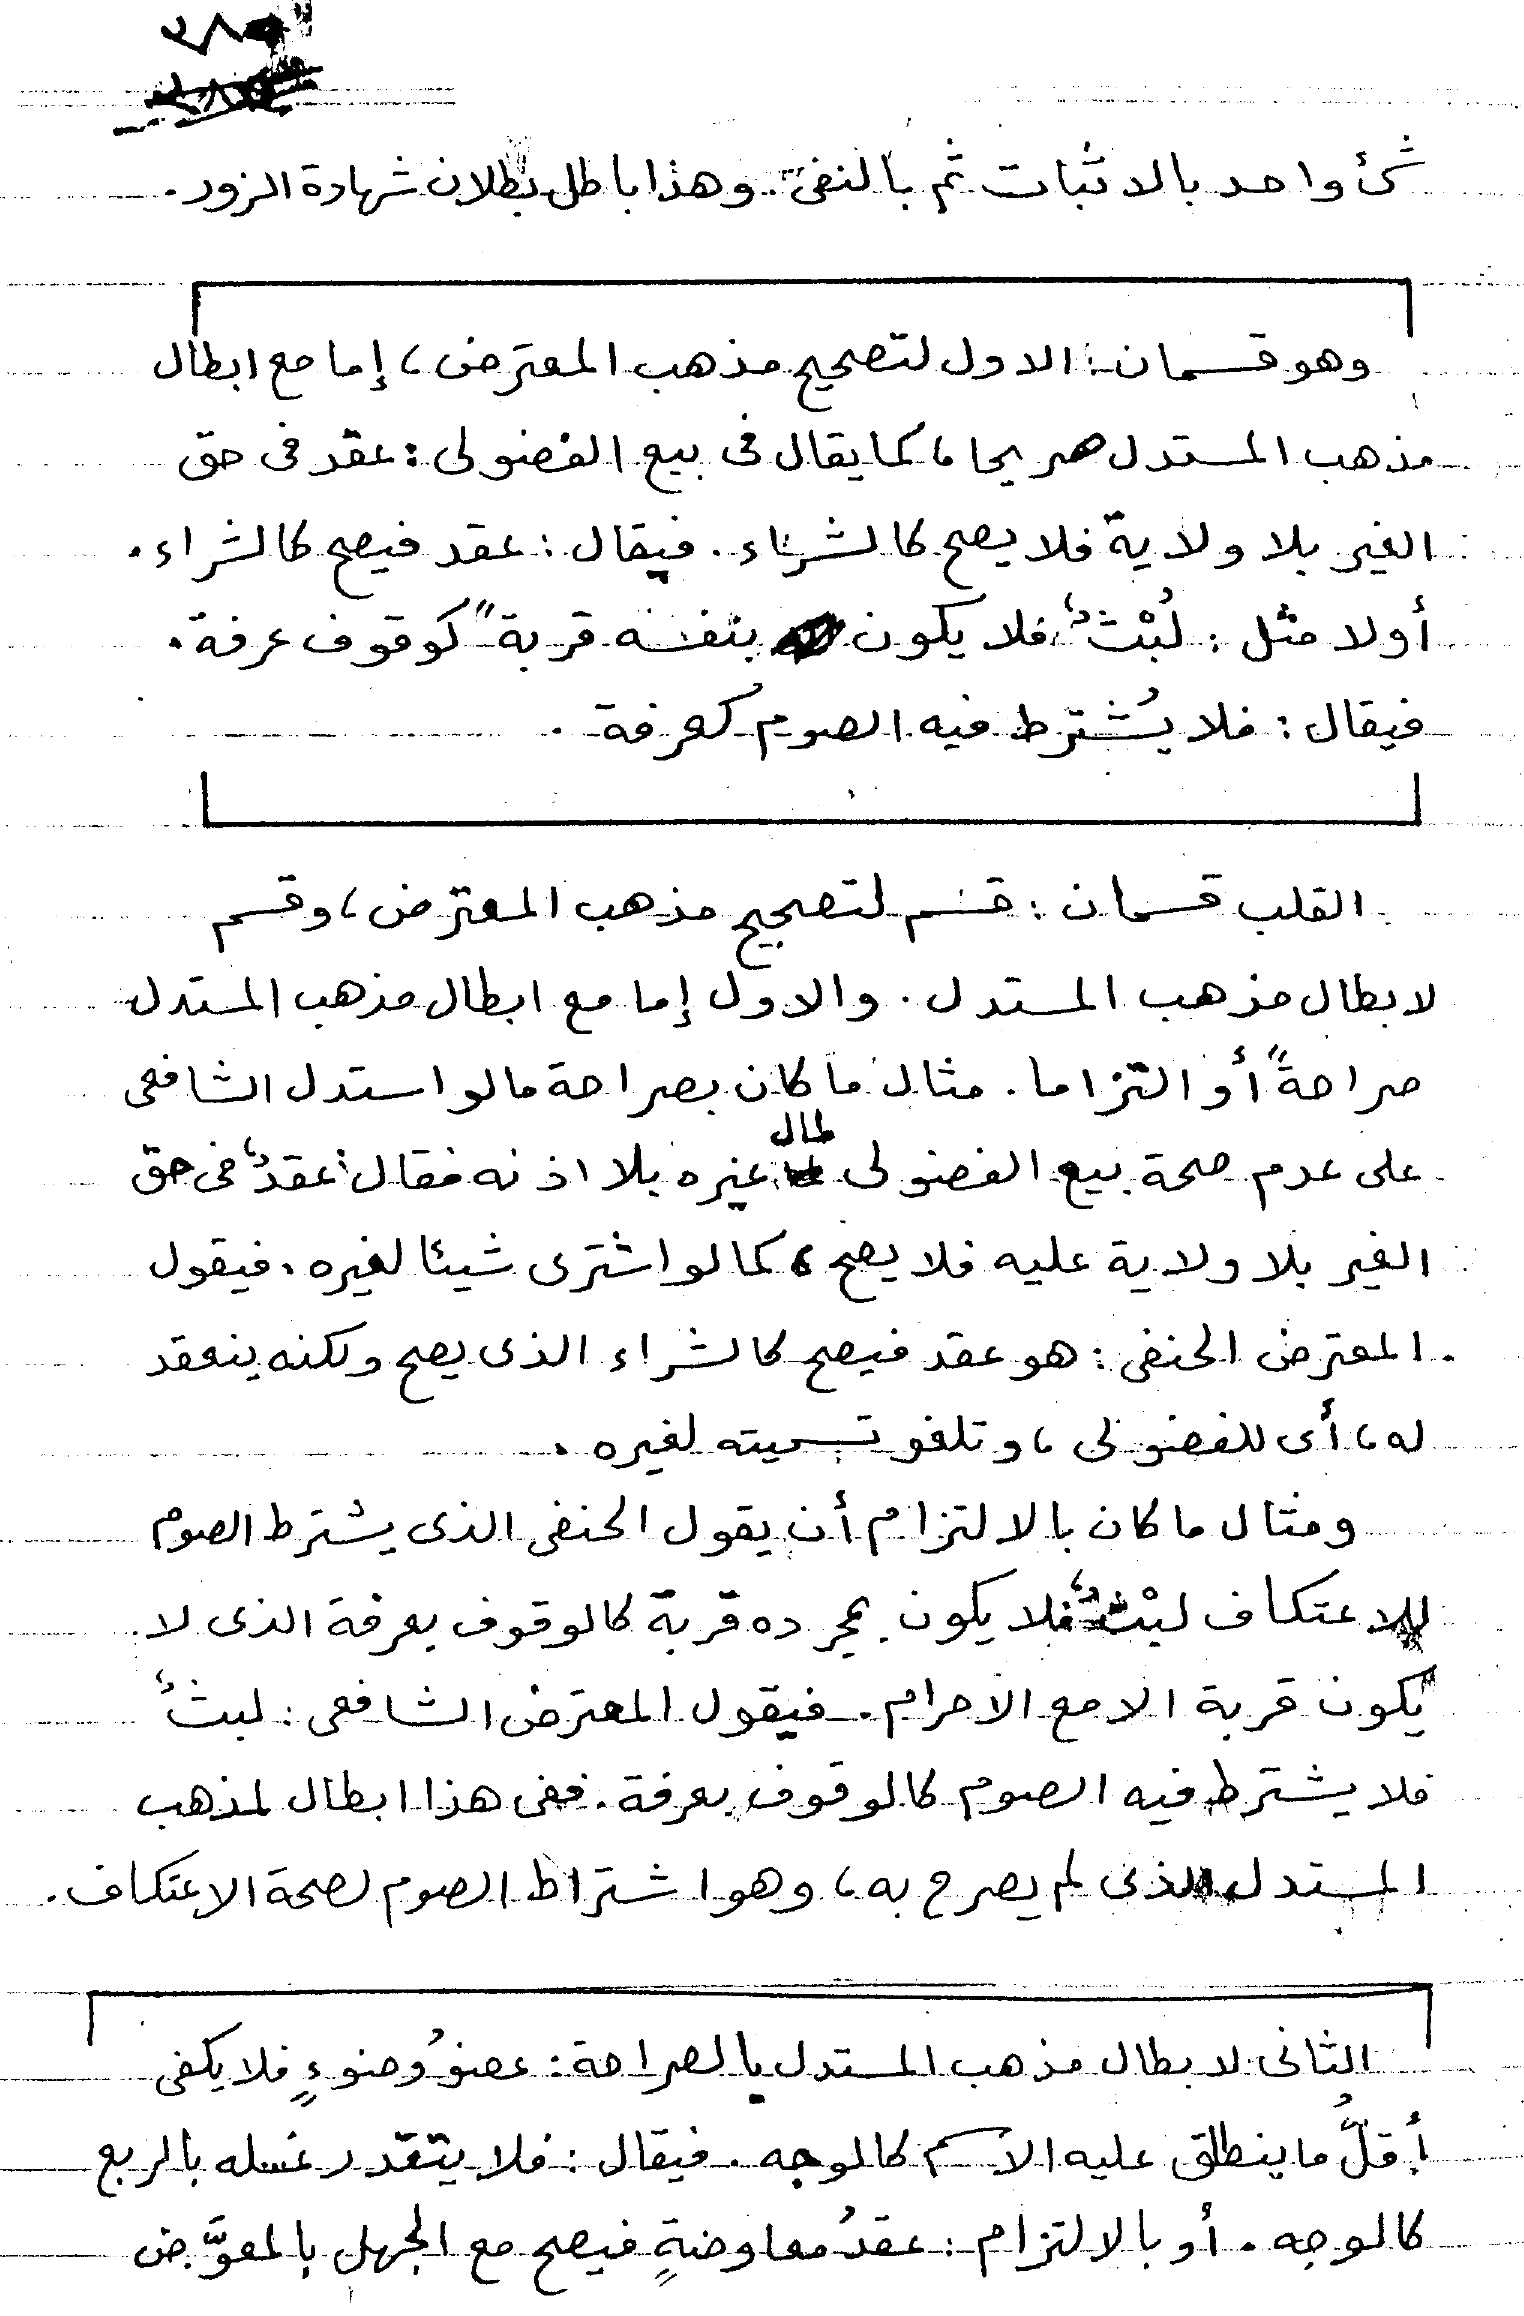 ٣٨٥
شئ واحد بالاثبات ثم بالنفى. وهذا باطل بطلان شهادة الزور.
وهو قسمان: الاول لتصحيح مذهب المعترض، إما مع ابطال
مذهب المستدل صريحا، كما يقال فى بيع الفضولى: عقد فى حق
الغير بلا ولاية فلا يصح كالشراء. فيقال: عقد فيصح كالشراء.
أولا مثل: لُبْثٌ، فلا يكون بنفسه قربةً كوقوف عرفة.
فيقال: فلا يُشترط فيه الصوم كعرفة.
القلب قسمان: قسم لتصحيح مذهب المعترض، وقسم
لابطال مذهب المستدل. والاول إما مع ابطال مذهب المستدل
صراحةً أو التزاما. مثال ما كان بصراحة مالو استدل الشافعى
على عدم صحة بيع الفضولى لمال غيره بلا اذنه فقال: عقدٌ فى حق
الغير بلا ولاية عليه فلا يصح، كما لو اشترى شيئا لغيره. فيقول
المعترض الحنفى: هو عقد فيصح كالشراء الذى يصح ولكنه ينعقد
له، أى للفضولى، وتلغو تسميته لغيره.
ومثال ما كان بالالتزام أن يقول الحنفى الذى يشترط الصوم
للاعتكاف لبْثٌ فلا يكون بمجرده قربة كالوقوف بعرفة الذى لا
يكون قربة الا مع الاحرام. فيقول المعترض الشافعى: لبثٌ
فلا يشترط فيه الصوم كالوقوف بعرفة. ففى هذا ابطال لمذهب
المستدل الذى لم يصرح به، وهو اشتراط الصوم لصحة الاعتكاف.
الثانى لابطال مذهب المستدل بالصراحة: عضوُ وضوءٍ فلا يكفى
أقلُّ ما ينطلق عليه الاسم كالوجه. فيقال: فلا يتقدر غسله بالربع
كالوجه. أو بالالتزام: عقدُ معاوضةٍ فيصح مع الجهل بالمعوَّض